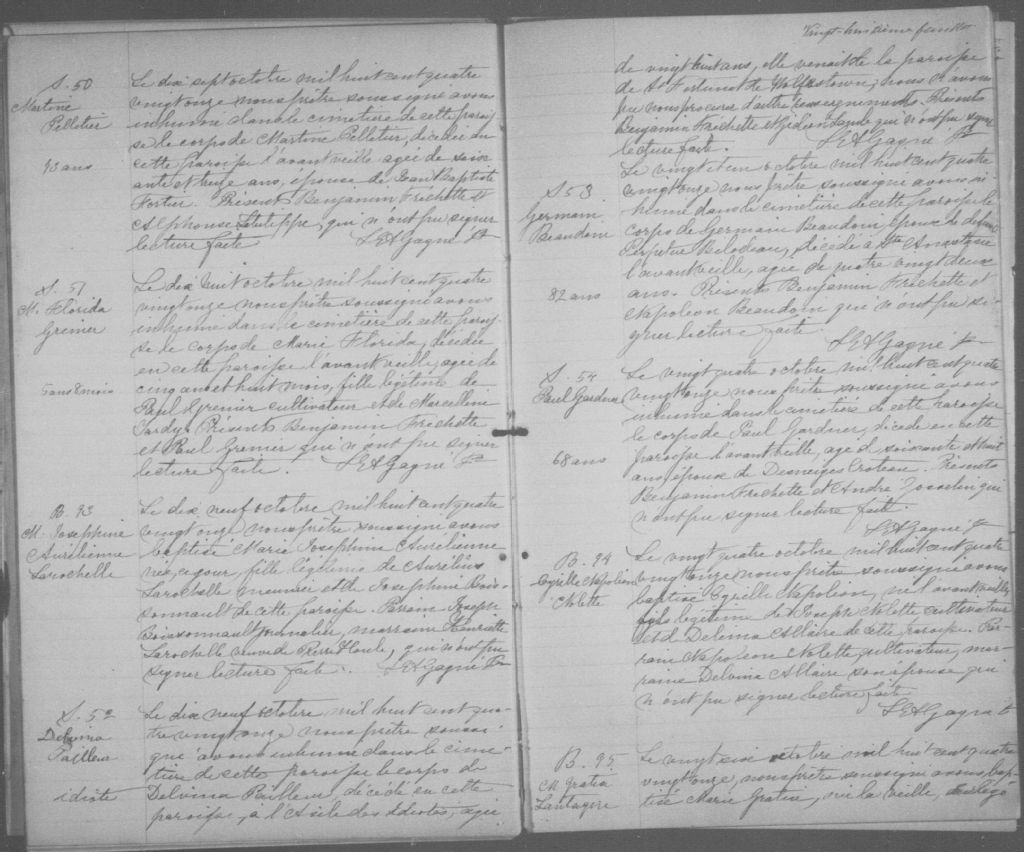 S. 50
Martine
Pelletier
Le dix sept octobre mil huit cent quatre
vingt onze nous prêtre soussigné avons
inhumé dans le cimetière de cette parois-
se le corps de Martine Pelletier, décédée en
cette paroisse l'avant veille agée de soix
ante et ans, épouse de Jean Baptiste
Fortier. Présents Benjamin Fréchette et
Alphonse qui n'ont pu signer
lecture faite L.E.A Gagné Ptre
S. 51
M. Florida
Grenier
5 ans 8 mois
Le dix huit octobre mil huit cent quatre
vingt onze nous prêtre soussigné avons
inhumé dans le cimetière de cette parois-
se le corps de Marie Florida, décédée
en cette paroisse l'avant veille, agée de
cinq ans et huit mois, fille légitime de
Paul Grenier cultivateur et de Marcelline
Tardif. Présents Benjamin Fréchette
et Paul Grenier qui n'ont pu signer
lecture faite. L.E.A Gagné Ptre
B. 93
M. Josephine
Aurélienne
Larochelle
Le dix neuf octobre mil huit cent quatre
vingt onze nous prêtre soussigné avons
baptisé Marie Josephine Aurélienne
née ce jour, fille légitime de Aurelius
Larochelle meunier et de Josephine Bois-
sonnault de cette paroisse. Parrain Joseph
Boissonnault journalier, marraine Henriette
Larochelle veuve de Pierre Houle, qui n'ont pu
signer lecture faite. L.E.A Gagné Ptre
S. 52
Delvina
Tailleur
idiote
Le dix neuf octobre mil huit cent qua-
tre vingt onze nous prêtre soussi-
gné avons inhumé dans le cime-
tière de cette paroisse le corps de
Delvina décédée en cette
paroisse, a l'Asile des Idiotes, agée
Vingt-huitième feuillet
de vingt huit ans, elle venait de la paroisse
de St Fortunat de Wolfestown; nous n'avons
pu nous procurer d'autres renseignements. Présents
Benjamin Fréchette et Gédéon qui n'ont pu signer
lecture faite. L.E.A Gagné Ptre
S. 53
Germain
Beaudoin
82 ans
Le vingt et un octobre mil huit cent quatre
vingt onze nous prêtre soussigné avons in
humé dans le cimetière de cette paroisse le
corps de Germain Beaudoin, époux de défunte
Perpétue Bilodeau, décédé à Ste Anastasie
l'avant veille, agé de quatre vingt deux
ans. Présents Benjamin Fréchette et
Napoleon Beaudoin qui n'ont pu si-
gner lecture faite.
L.E.A Gagné Ptre
S. 54
Paul Gardner
68 ans
Le vingt quatre octobre mil huit cent quatre
vingt onze nous prêtre soussigné avons
inhumé dans le cimetière de cette paroisse
le corps de Paul Gardner, décédé en cette
paroisse l'avant veille, agé de soixante et huit
ans époux de Desneiges Croteau. Présents
Benjamin Fréchette et André Josselin qui
n'ont pu signer lecture faite.
L.E.A Gagné Ptre
B. 94
Cyrille Napoléon
Nolette
Le vingt quatre octobre mil huit cent quatre
vingt onze nous prêtre soussigné avons
baptisé Cyrille Napoléon, né l'avant veille,
fils légitime de Joseph Nolette cultivateur
et de Delvina Allaire de cette paroisse. Par-
rain Napoléon Nolette cultivateur, mar-
raine Delvina Allaire son épouse qui
n'ont pu signer lecture faite
L.E.A Gagné Ptre
B. 95
M. Gratia
Le vingt six octobre mil huit cent quatre
vingt onze, nous prêtre soussigné avons bap-
tisé Marie Gratia, née la veille,